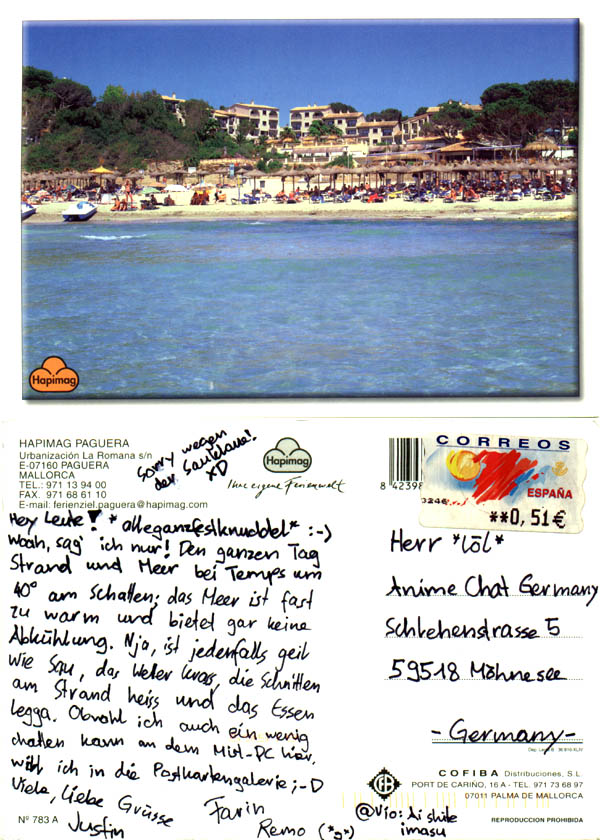 Hapimag
HAPIMAG PAGUERA
Urbanización La Romana s/n
E-07160 PAGUERA
MALLORCA
TEL.: 971 13 94 00
FAX. 971 68 61 10
E-mail: ferienziel.paguera@hapimag.com
Sorry wegen
der Sauklaue!
XD
Hapimag
Ihre eigene Ferienwelt
8 42398
CORREOS
ESPAÑA
**0,51€
Hey Leute! *alleganzfestknuddel* :-)
Woah, sag' ich nur! Den ganzen Tag
Strand und Meer bei Temps um
40° am Schatten; das Meer ist fast
zu warm und bietet gar keine
Abkühlung. Nja, ist jedenfalls geil
wie Sau, das Wetter krass, die Schnitten
am Strand heiss und das Essen
legga. Obwohl ich auch ein wenig
chatten kann an dem Mist-PC hier,
will ich in die Postkartengalerie ;-D
Viele, liebe Grüsse
Farin
Justin
Remo (*g*)
Herr *lōl*
Anime Chat Germany
Schlehenstrasse 5
59518 Möhnesee
-Germany-
COFIBA Distribuciones, S.L
PORT DE CARIÑO, 16 A - TEL. 971 73 68 97
07011 PALMA DE MALLORCA
@Vio: Ai shite
imasu
Nº 783 A
REPRODUCCION PROHIBIDA